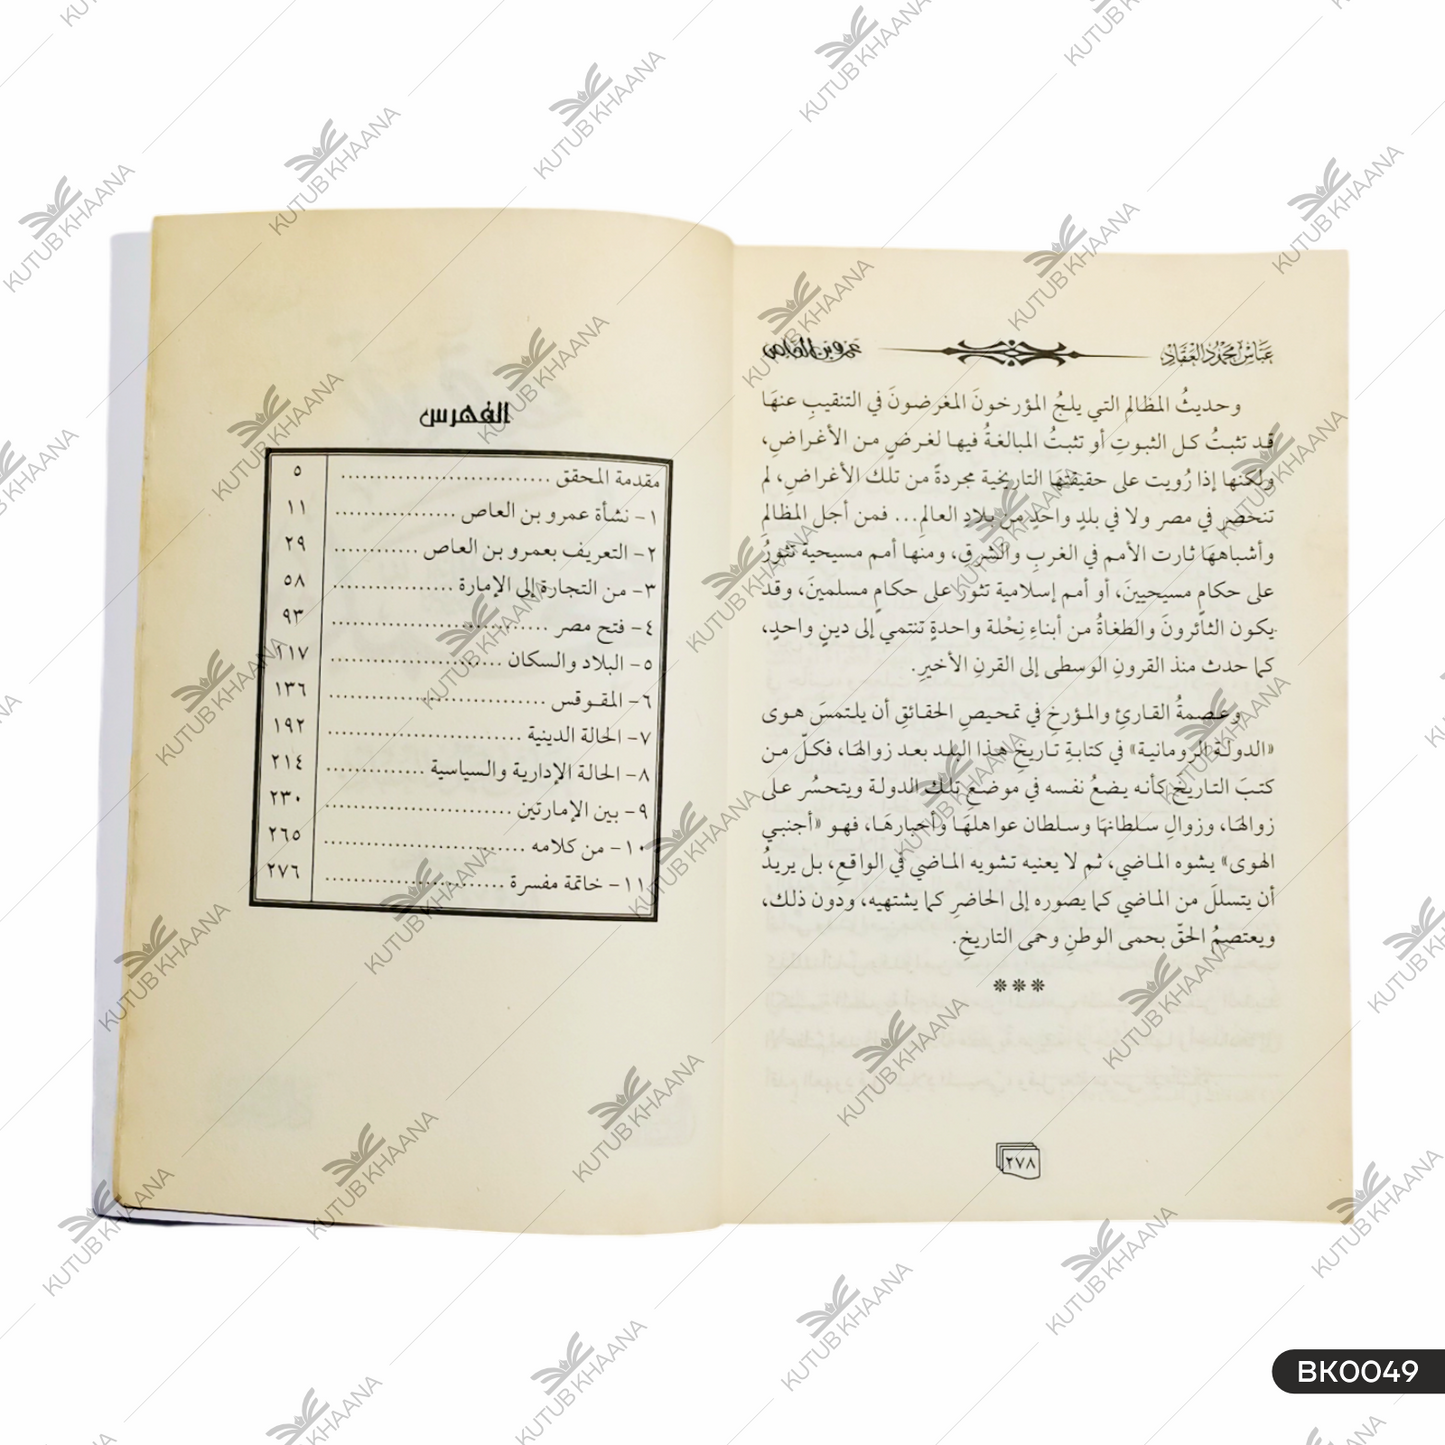 عباس محمود العقاد
عمرو بن العاص
وحديثُ المظالم التي يلجُ المؤرخونَ المغرضونَ في التنقيبِ عنهَا
قد تثبتُ كل الثبوتِ أو تثبتُ المبالغةُ فيها لغرضٍ من الأغراضِ،
ولكنها إذا رُويت على حقيقتهَا التاريخية مجردةً من تلك الأغراضِ، لم
تنحصر في مصر ولا في بلدٍ واحدٍ من بلادِ العالمِ... فمن أجل المظالمِ
وأشباههَا ثارت الأمم في الغربِ والشرقِ، ومنها أمم مسيحية تثورُ
على حكامٍ مسيحيينَ، أو أمم إسلامية تثورُ على حكامٍ مسلمينَ، وقد
يكون الثائرونَ والطغاةُ من أبناءِ نِحْلة واحدةٍ تنتمي إلى دينٍ واحدٍ،
كما حدث منذ القرونِ الوسطى إلى القرنِ الأخيرِ.
وعصمةُ القارئِ والمؤرخِ في تمحيصِ الحقائقِ أن يلتمسَ هوى
«الدولة الرومانية» في كتابةِ تاريخِ هذا البلد بعد زوالهَا، فكلّ من
كتبَ التاريخَ كأنه يضعُ نفسه في موضعِ تلك الدولة ويتحسُر على
زوالهَا، وزوالِ سلطانهَا وسلطان عواهلهَا وأحبارهَا، فهو «أجنبي
الهوى» يشوه الماضي، ثم لا يعنيه تشويه الماضي في الواقعِ، بل يريدُ
أن يتسللَ من الماضي كما يصوره إلى الحاضرِ كما يشتهيه، ودون ذلك،
ويعتصمُ الحقّ بحمى الوطنِ وحمى التاريخِ.
***
٢٧٨
الفهرس
مقدمة المحقق ............................ ٥
١- نشأة عمرو بن العاص ................. ١١
٢- التعريف بعمرو بن العاص ............ ٢٩
٣- من التجارة إلى الإمارة ................. ٥٨
٤- فتح مصر ............................ ٩٣
٥- البلاد والسكان ........................ ١١٧
٦- المقوقس ............................ ١٣٦
٧- الحالة الدينية .......................... ١٩٢
٨- الحالة الإدارية والسياسية .............. ٢١٤
٩- بين الإمارتين .......................... ٢٣٠
١٠- من كلامه ............................ ٢٦٥
١١- خاتمة مفسرة ......................... ٢٧٦
KUTUB KHAANA
BK0049